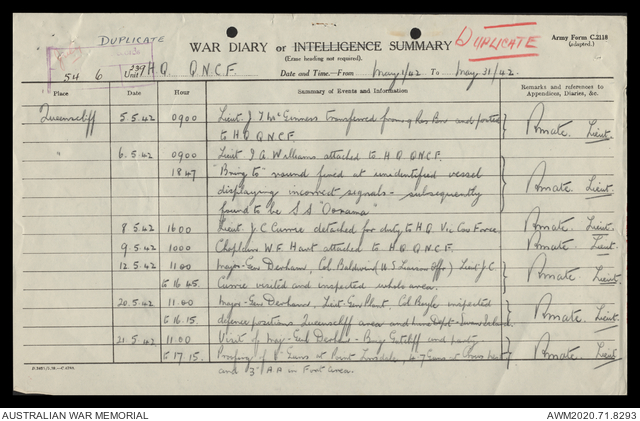 DUPLICATE
WAR DIARY or INTELLIGENCE SUMMARY
DUPLICATE
Army Form C.2118
(adapted.)
(Erase heading not required).
54 6 Unit H.Q. Q.N.C.F.
Date and Time—From May 1/42 To May 31/42.
Place Date Hour Summary of Events and Information Remarks and references to Appendices, Diaries, &c.
Queenscliff 5.5.42 0900 Lieut J. McGinness transferred from Res and posted
to H.Q. Q.N.C.F. Lieut.
" 6.5.42 0900 Lieut J A Williams attached to H.Q. Q.N.C.F.
1847 "Bring to" round fired at unidentified vessel
displaying incorrect signals - subsequently Lieut.
found to be S.S. "Oonama"
8.5.42 1600 Lieut J C Currie detached for duty to H.Q. Vic Cov Force. Lieut.
9.5.42 1000 Chaplain W.E. Hart attached to H.Q. Q.N.C.F. Lieut.
12.5.42 1100 Major-Gen Derham, Col. Baldwin (U.S. Liaison Offr) Lieut J.C.
to 16.45 Currie visited and inspected whole area. Lieut.
20.5.42 11.00 Major-Gen Derham, Lieut-Gen Plant, Col Boyle inspected
to 16.15. defence positions Queenscliff area and Swan Island. Lieut.
21.5.42 11.00 Visit of Derham - Brig and party
to 17.15. Proofing of Guns at Point Lonsdale, Guns at
and 3" A A in Fort area. Lieut
AUSTRALIAN WAR MEMORIAL
AWM2020.71.8293